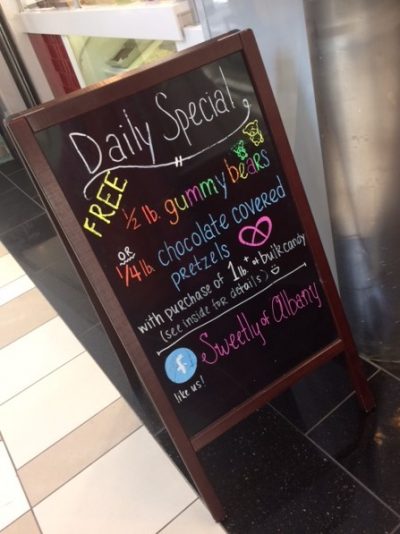 Daily Special
FREE
1/2 lb. gummy bears
OR
1/4 lb. chocolate covered
pretzels
with purchase of 1 lb.+ of bulk candy
(see inside for details)
Sweetly of Albany
f
like us!